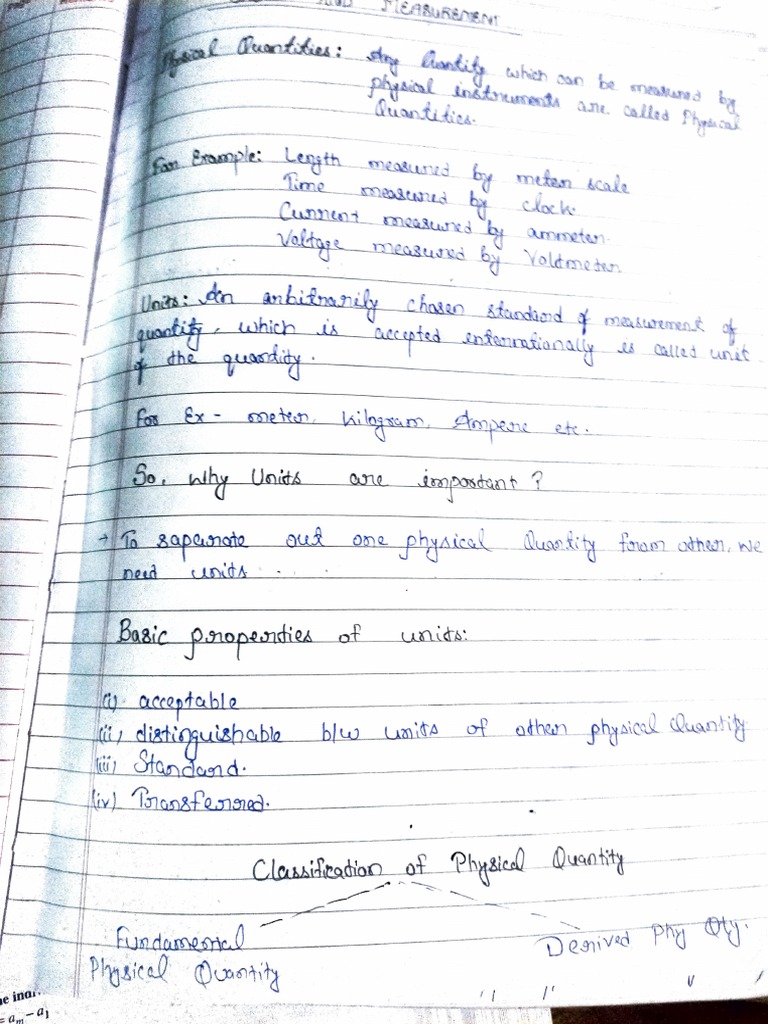 AND MEASUREMENT
Physical Quantities: Any Quantity which can be measured by
physical instruments are called Physical
Quantities.
For Example: Length measured by meter scale
Time measured by clock.
Current measured by ammeter.
Voltage measured by Voldmeter
Units: An arbitrarily chosen standard of measurement of
quantity, which is accepted internationally is called unit
of the quantity.
For Ex - meter, Kilogram, Ampere etc.
So, why Units are important?
→ To saperate out one physical Quantity from other, we
need units.
Basic properties of units:
(i) acceptable
(ii) distinguishable b/w units of other physical Quantity
(iii) Standard.
(iv) Transferred.
Classification of Physical Quantity
Fundamental
Physical Quantity
Derived Phy Qty.
= aₘ − a₁